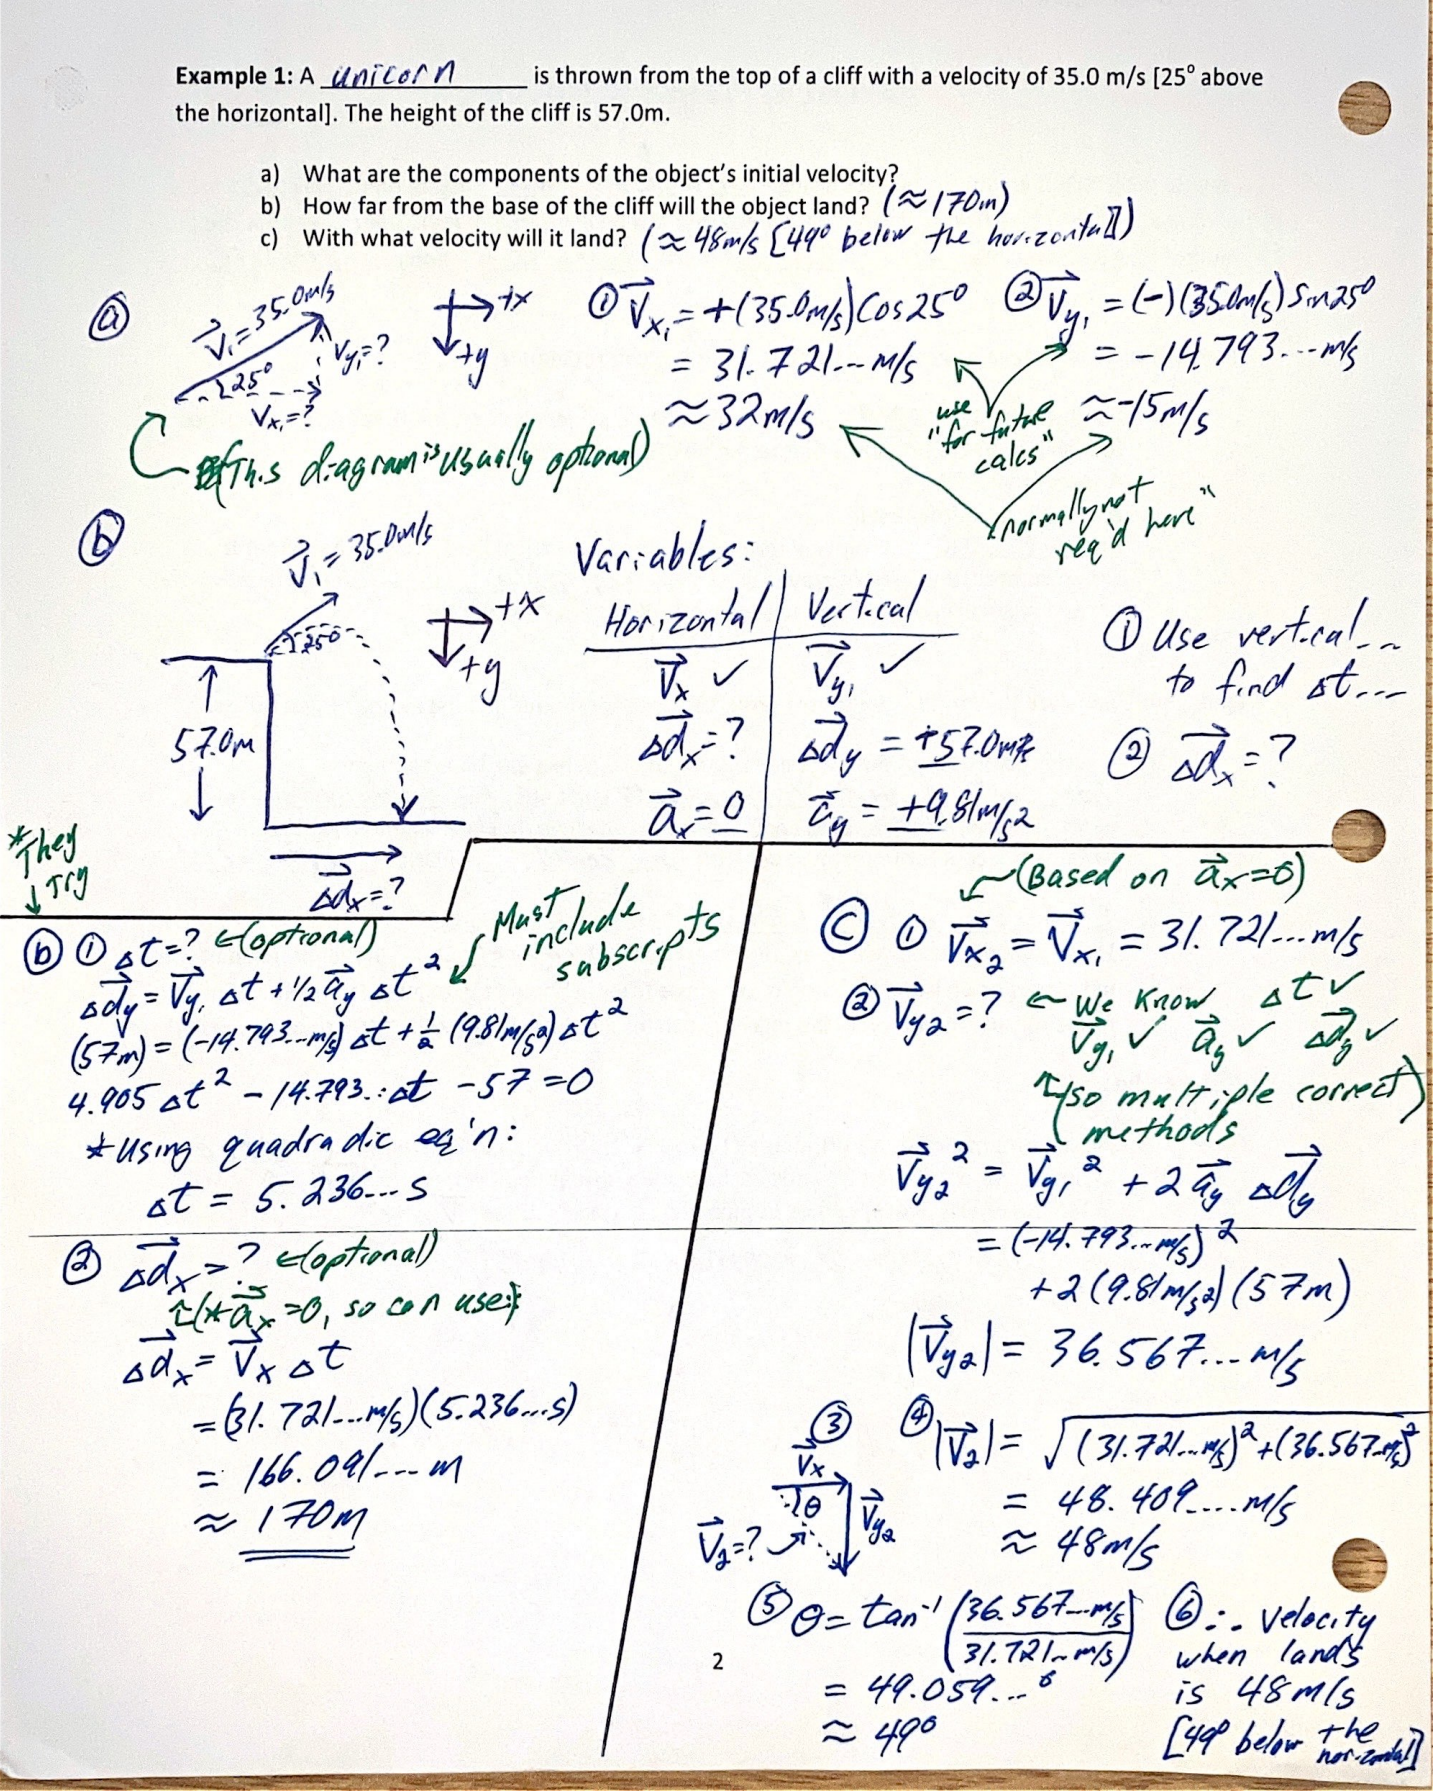 Example 1: A unicorn is thrown from the top of a cliff with a velocity of 35.0 m/s [25° above
the horizontal]. The height of the cliff is 57.0m.
a) What are the components of the object's initial velocity?
b) How far from the base of the cliff will the object land? (≈170m)
c) With what velocity will it land? (≈ 48m/s [49° below the horizontal])
ⓐ
V⃗₁=35.0m/s
25°
Vy₁=?
Vx₁=?
+x
+y
(This diagram is usually optional)
① V⃗x₁ = +(35.0m/s)Cos25°
= 31.721... m/s
≈ 32m/s
② V⃗y₁ = (-)(35.0m/s)Sin25°
= -14.793... m/s
≈ -15m/s
use
"for future
calcs"
(normally not
req'd here"
ⓑ
V⃗₁ = 35.0m/s
25°
+x
+y
57.0m
Δd⃗x=?
Variables:
Horizontal Vertical
V⃗x ✓ V⃗y₁ ✓
Δd⃗x=? Δd⃗y = +57.0m
a⃗x=0 a⃗y = +9.81m/s²
① Use vertical...
to find Δt...
② Δd⃗x=?
*They
↓Try
ⓑ ① Δt=? ←(optional)
Δd⃗y = V⃗y₁ Δt + 1/2 a⃗y Δt²
Must
include
subscripts
(57m) = (-14.793...m/s) Δt + 1/2 (9.81m/s²) Δt²
4.905 Δt² - 14.793...Δt - 57 = 0
*Using quadradic eq'n:
Δt = 5.236... s
② Δd⃗x = ? ←(optional)
↑(*a⃗x=0, so can use:)
Δd⃗x = V⃗x Δt
= (31.721...m/s)(5.236...s)
= 166.091... m
≈ 170m
(Based on a⃗x=0)
ⓒ ① V⃗x₂ = V⃗x₁ = 31.721... m/s
② V⃗y₂=? ← We Know Δt ✓
V⃗y₁ ✓ a⃗y ✓ Δd⃗y ✓
↑(so multiple correct)
methods
V⃗y₂² = V⃗y₁² + 2 a⃗y Δd⃗y
= (-14.793...m/s)²
+2(9.81m/s²)(57m)
|V⃗y₂| = 36.567... m/s
③
V⃗x
θ
V⃗y₂
V⃗₂=?
④ |V⃗₂| = √((31.721...m/s)²+(36.567...m/s)²)
= 48.409.... m/s
≈ 48m/s
⑤ θ = tan⁻¹ (36.567...m/s / 31.721...m/s)
= 49.059...°
≈ 49°
⑥ ∴ velocity
when lands
is 48m/s
[49° below the
horizontal]
2